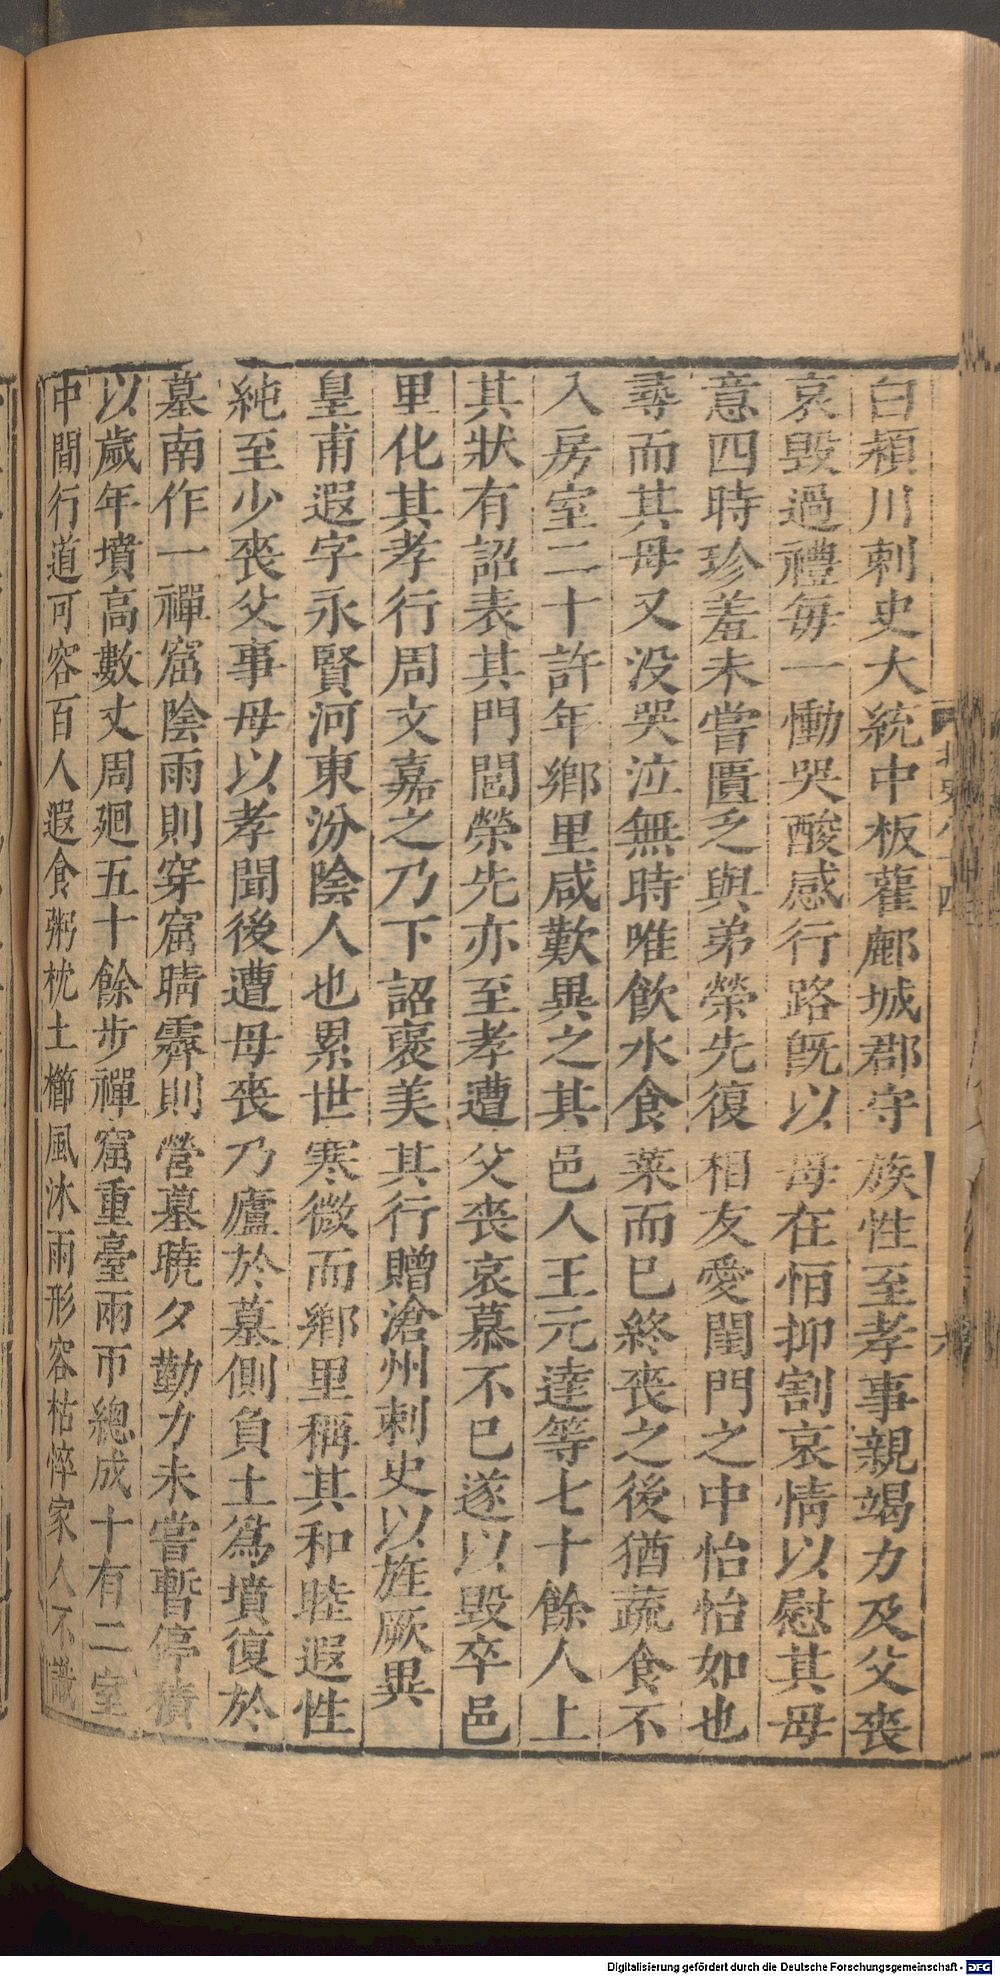 白穎川刺史大統中板藋郙城郡守族性至孝事親竭力及父喪
哀毀過禮每一慟哭酸感行路旣以母在恒抑割哀情以慰其母
意四時珍羞未嘗匱乏與弟榮先復相友愛閨門之中怡怡如也
尋而其母又没哭泣無時唯飲水食菜而已終喪之後猶蔬食不
入房室二十許年鄉里咸歎異之其邑人王元達等七十餘人上
其狀有詔表其門閭榮先亦至孝遭父喪哀慕不已遂以毀卒邑
里化其孝行周文嘉之乃下詔褒美其行贈滄州刺史以旌厥異
皇甫遐字永賢河東汾陰人也累世寒微而鄉里稱其和睦遐性
純至少喪父事母以孝聞後遭母喪乃廬於墓側負土爲墳復於
墓南作一禪窟陰雨則穿窟晴霽則營墓曉夕勤力未嘗暫停積
以歲年墳高數丈周廻五十餘步禪窟重臺兩帀總成十有二室
中間行道可容百人遐食粥枕土櫛風沐雨形容枯悴家人不識
Digitalisierung gefördert durch die Deutsche Forschungsgemeinschaft - DFG